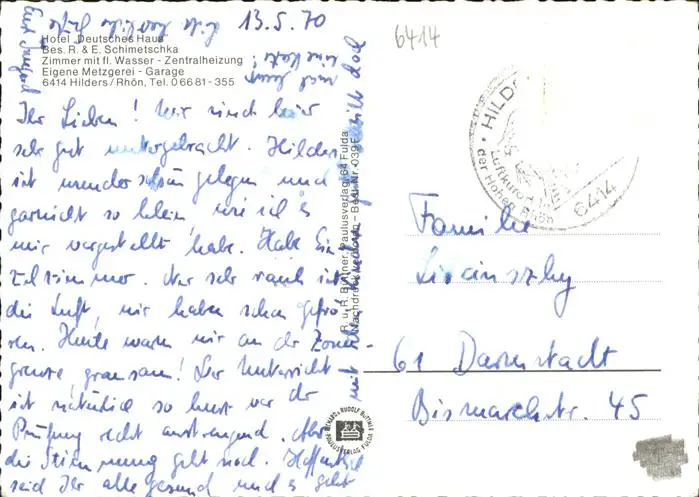 13.5.70
Hotel „Deutsches Haus"
Bes. R. & E. Schimetschka
Zimmer mit fl. Wasser - Zentralheizung
Eigene Metzgerei - Garage
6414 Hilders/Rhön, Tel. 0 66 81 - 355
Ihr Lieben! Wir sind hier
sehr gut untergebracht. Hilders
ist wunderschön gelegen und
garnicht so klein wie ich es
mir vorgestellt habe. Habe Ein-
zelzimmer. Nur sehr rauh ist
die Luft, wir haben schon gefro-
ren. Heute waren wir an der Zonen-
grenze grausam! Der Unterricht
ist natürlich so kurz vor der
Prüfung recht anstrengend. Aber
die Stimmung geht noch. Hoffentlich
seid Ihr alle gesund und es geht
R. u. R. Büttner, Paulusverlag, 64 Fulda
Best.-Nr. 039
RICHARD & RUDOLF BÜTTNER
PAULUSVERLAG FULDA
6414
HILDERS
Luftkurort
der Hohen Rhön
6414
Familie
61 Darmstadt
Bismarckstr. 45